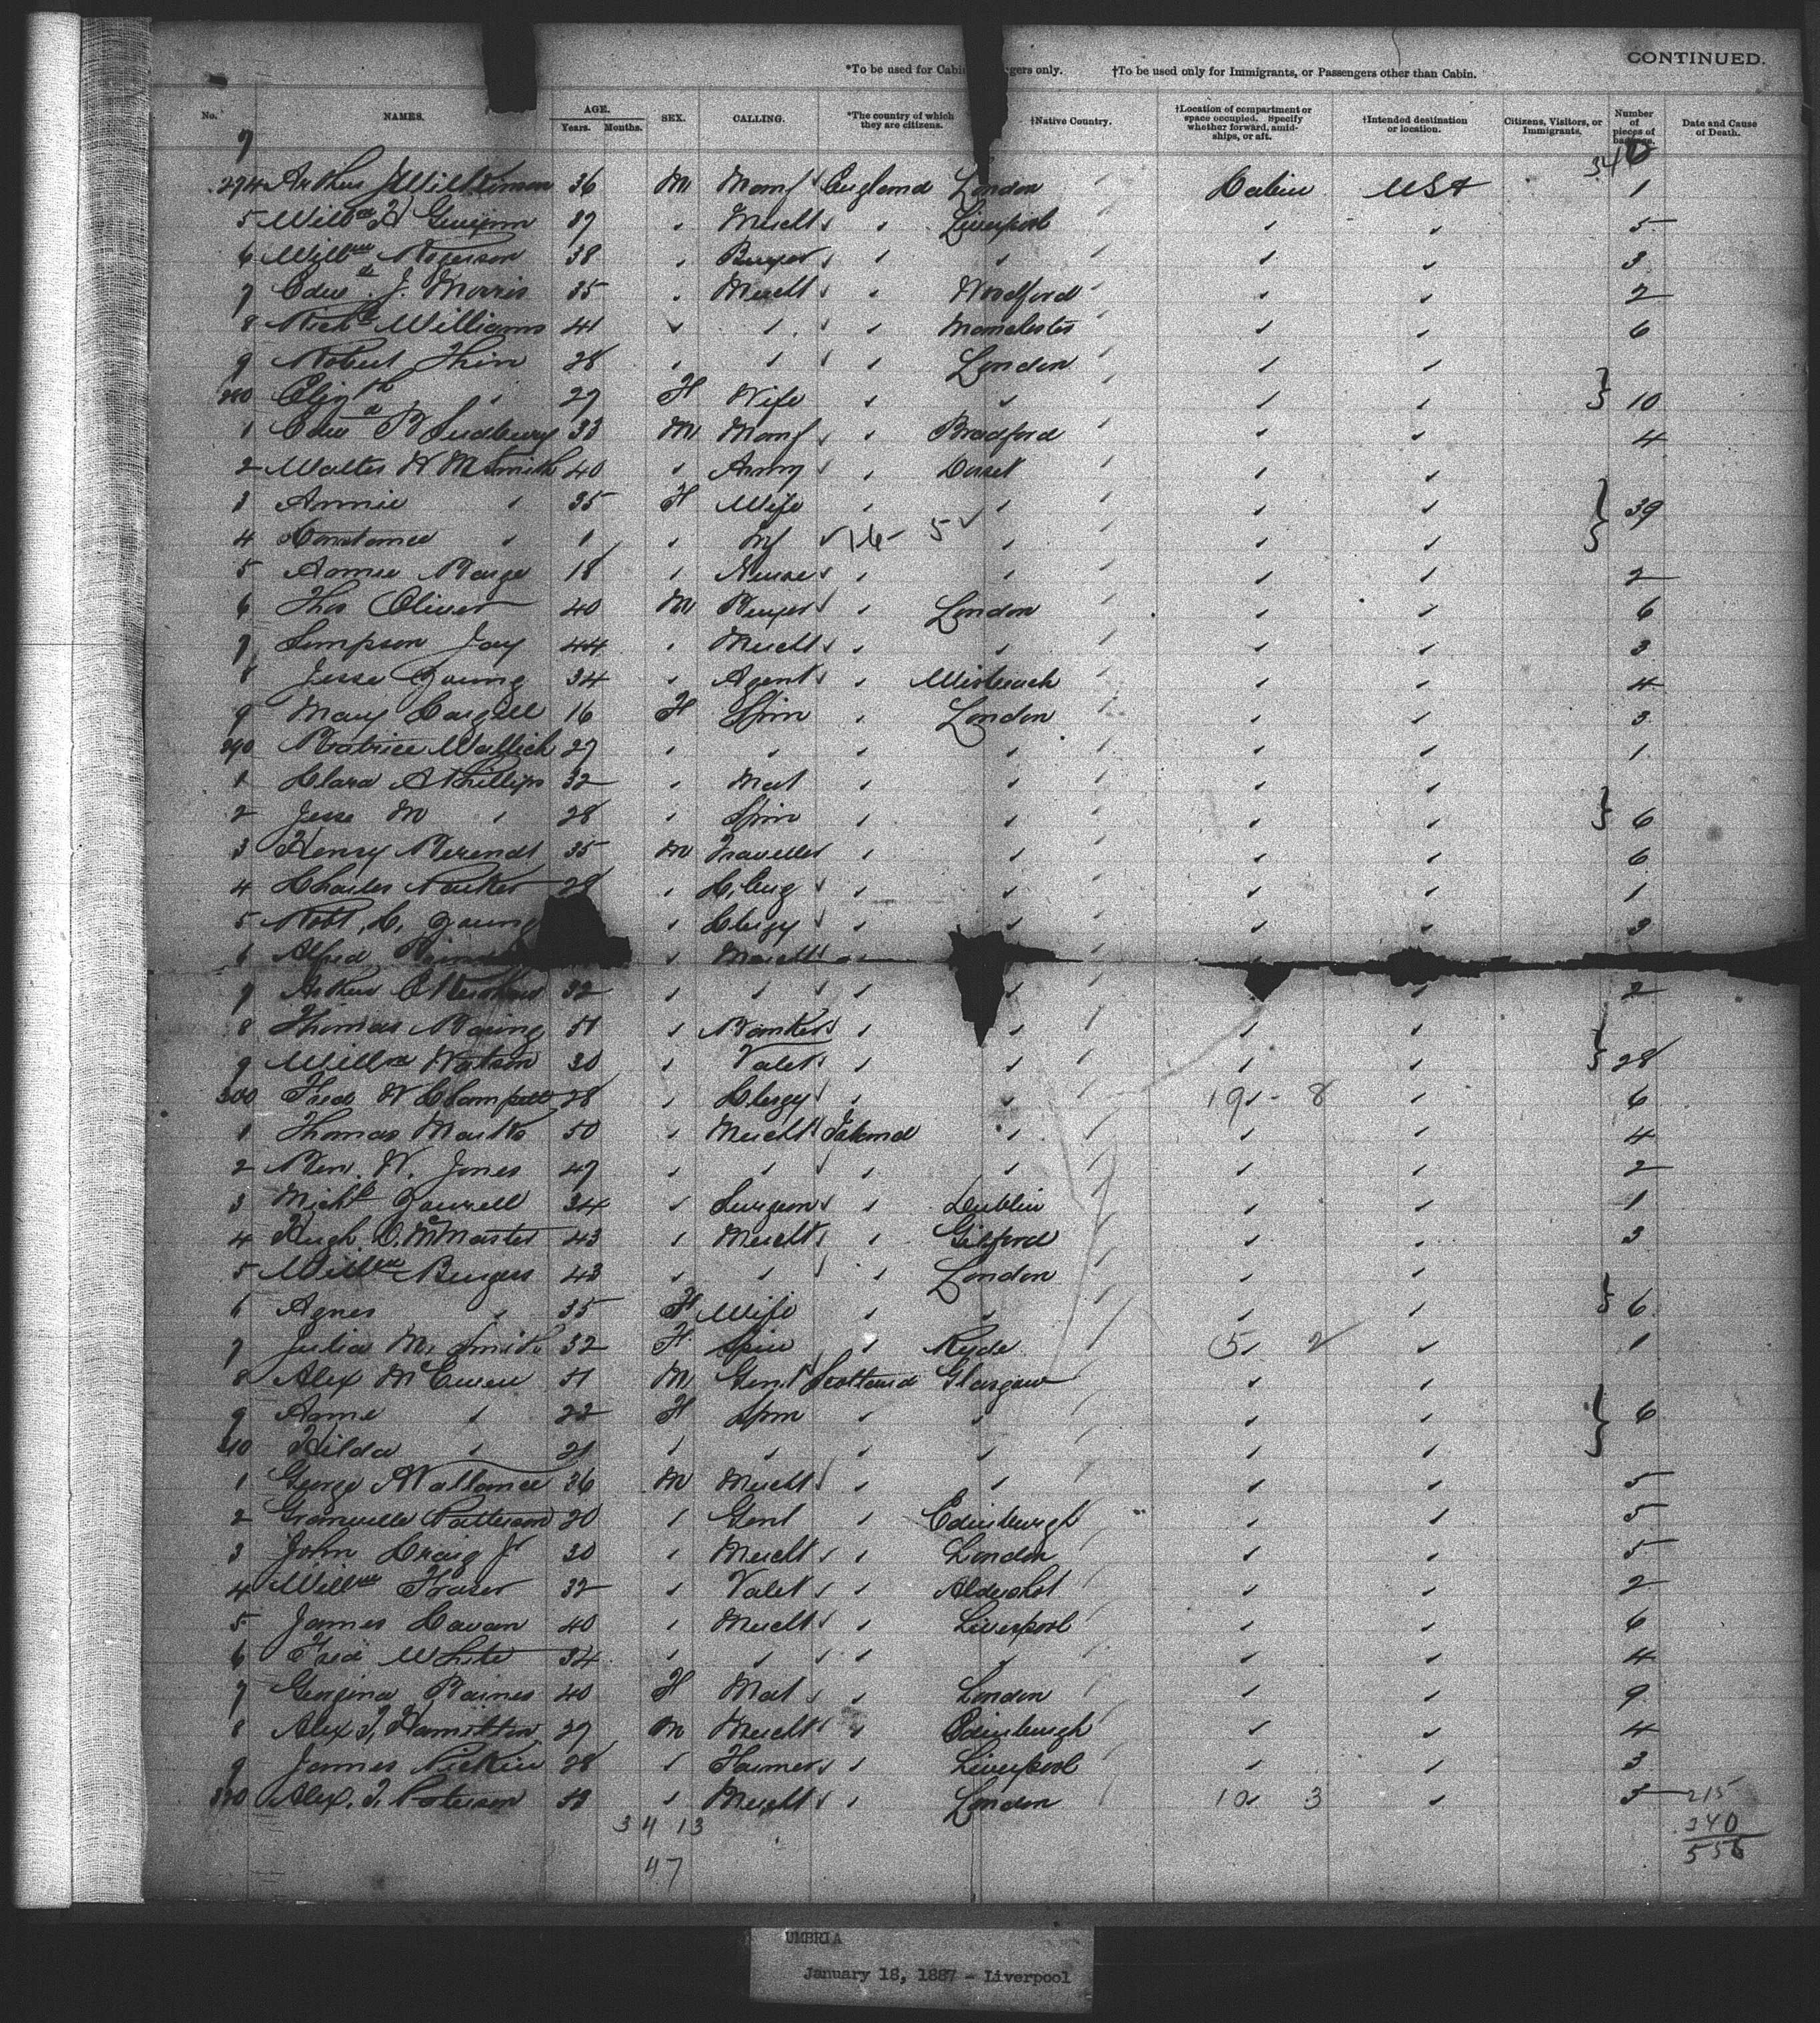 CONTINUED.
*To be used for Cabin gers only. †To be used only for Immigrants, or Passengers other than Cabin.
No. NAMES. AGE. Years. Months. SEX. CALLING. *The country of which they are citizens. †Native Country. †Location of compartment or space occupied. Specify whether forward, amidships, or aft. †Intended destination or location. Citizens, Visitors, or Immigrants. Number of pieces of baggage. Date and Cause of Death.
7 340
294 Arthur J Wilkinson 36 M Manf England London Cabin USA 1
5 Willm H Gwynn 37 Mercht Liverpool 5
6 Willm Rogerson 38 Buyer 3
7 Edwd. J. Morris 35 Mercht Woodford 2
8 Richd Williams 41 Manchester 6
9 Robert Thin 28 London
280 Elizth 27 F Wife 10
1 Edwd B Sudbury 33 M Manf Bradford 4
2 Walter W M Smith 40 Army Dorset
3 Annie 35 F Wife 39
4 Constance 1 Inf 16 5
5 Annie Paige 18 Nurse 2
6 Thos Oliver 40 M Buyer London 6
7 Simpson Jay 44 Mercht 3
8 Jesse Young 34 Agent Wisbeach 4
9 Mary Cargill 16 F Spin London 3
290 Beatrice Wallich 27 1
1 Clara A Phillips 32 Mat
2 Jesse M 28 Spin 6
3 Henry Berendt 35 M Traveller 6
4 Charles Parker 28 C. Eng 1
5 Robt. C. Young Clergy 3
6 Alfred Mercht
7 Arthur C Kershaw 32 2
8 Thomas Baring 51 Banker
9 Willm Watson 30 Valet 28
300 Fred W Champell 28 Clergy 19 - 8 6
1 Thomas Marks 50 Mercht Ireland 4
2 Ben. W. Jones 47 2
3 Michl Yourell 34 Surgeon Dublin 1
4 Hugh C. McMaster 43 Mercht Gilford 3
5 Willm Burgess 43 London
6 Agnes 35 F Wife 6
7 Julia M. Smith 32 F Spin Ryde 15 2 1
8 Alex McEwen 51 M Gent Scotland Glasgow
9 Anne 22 F Spin 6
310 Hilda 21
1 George A Vallance 36 M Mercht 5
2 Granville Patterson 20 Gent Edinburgh 5
3 John Craig Jr 30 Mercht London 5
4 Willm Fraser 32 Valet Aldershot 2
5 James Cavan 40 Mercht Liverpool 6
6 Fred White 34 4
7 Georgina Raines 40 F Mat London 9
8 Alex T. Hamilton 27 M Mercht Edinburgh 4
9 James Pickin 28 Farmer Liverpool 3
320 Alex. T. Paterson 53 Mercht London 10 3 5 215
34 13 340
47 556
UMBRIA
January 18, 1887 - Liverpool